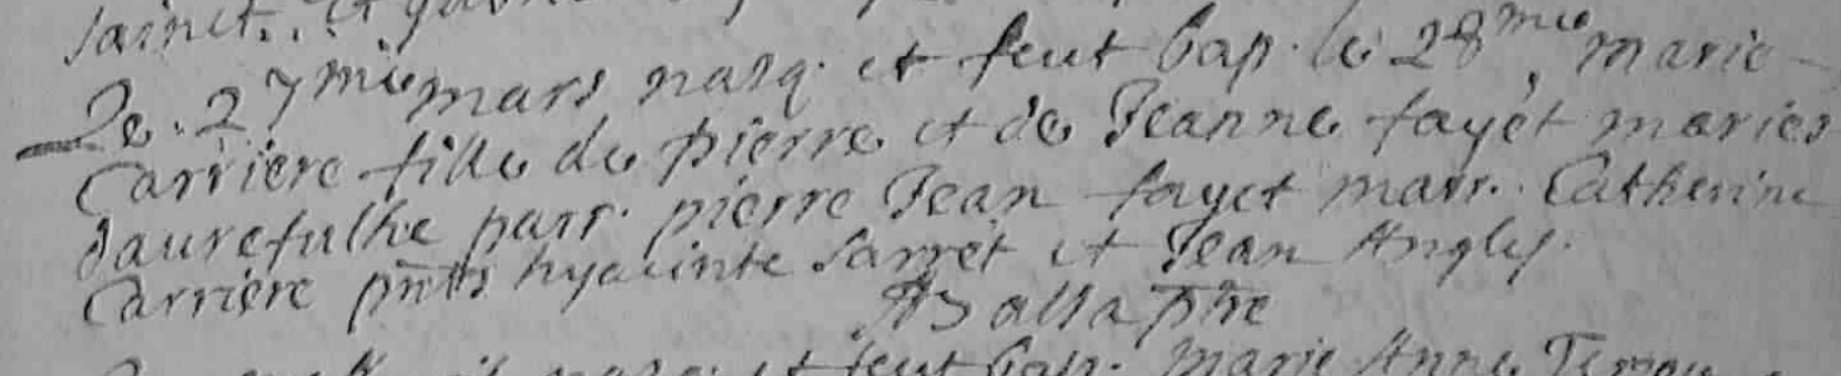 sainct. . Et
Le. 27 mie mars nasq. et feut bap. le 28 mie, marie
Carriere fille de pierre et de Jeanne fayet mariés
daurefulhe parr. pierre Jean fayet marr. Catherine
Carriere pnts hyacinte Sarret et Jean Angles.
Balsa ptre
nasq. et feut bap. marie Anne